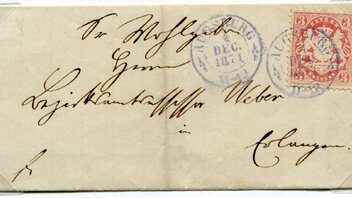 Sr Wohlgeb.
Herrn
Bezirksamtsassessor Weber
in
Erlangen.
fr
AUGSBURG
DEC.
1871
AUGSBURG
3
3
3
3